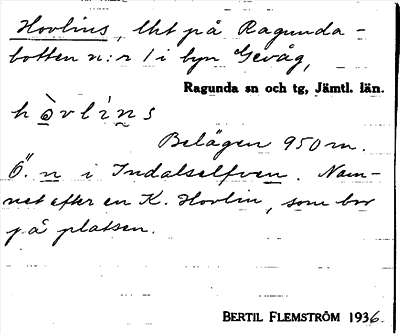 Hovlins, lht på Ragunda-
botten n:r 1 i byn Gevåg,
Ragunda sn och tg, Jämtl. län.
h ò̲ v l ì n̰ s
Belägen 950 m.
Ö. n i Indalselfven. Nam-
net efter en K. Hovlin, som bor
på platsen.
BERTIL FLEMSTRÖM 1936.